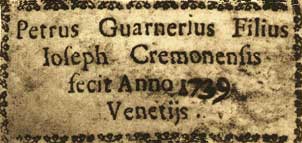 Petrus Guarnerius Filius
Ioseph Cremonensis
fecit Anno 1739
Venetijs.